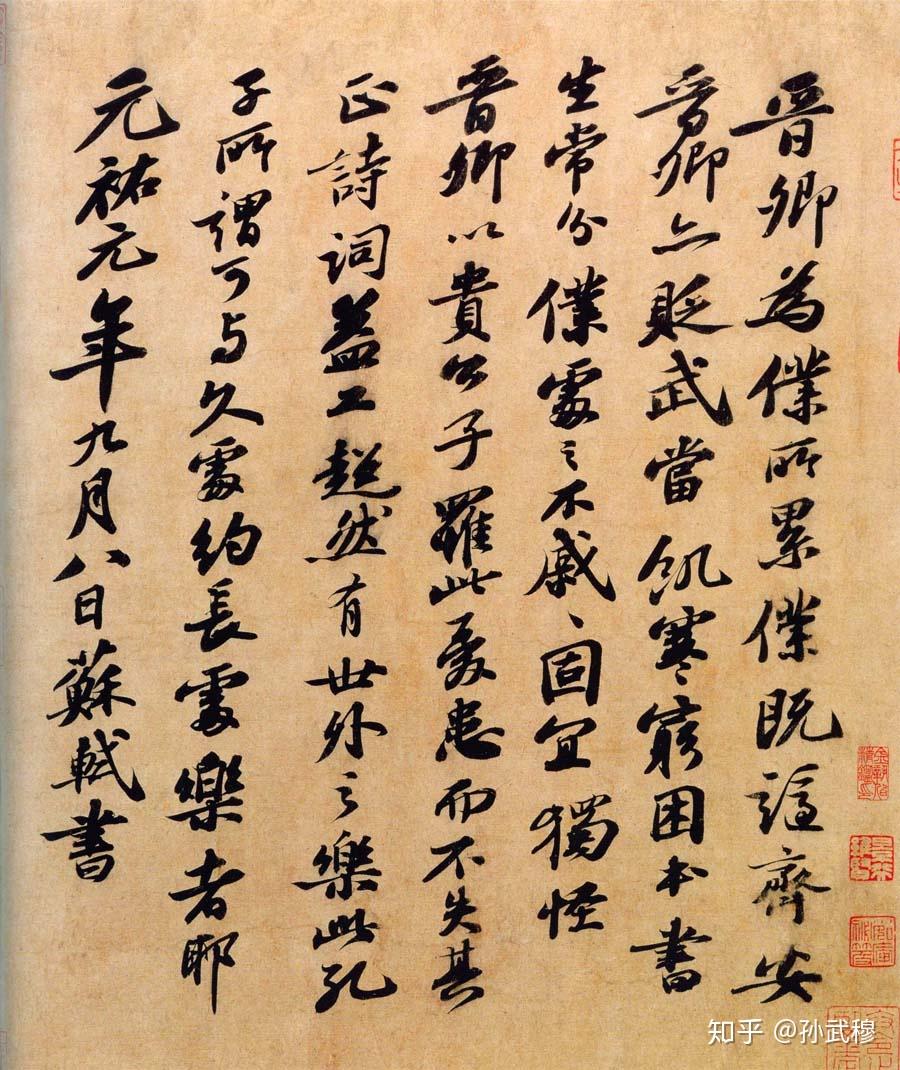 晉卿為僕所累僕既謫齊安
晉卿亦貶武當飢寒窮困本書
生常分僕處之不戚戚固宜獨怪
晉卿以貴公子罹此憂患而不失其
正詩詞益工超然有世外之樂此孔
子所謂可与久處約長處樂者耶
元祐元年九月八日蘇軾書
知乎 @孙武穆